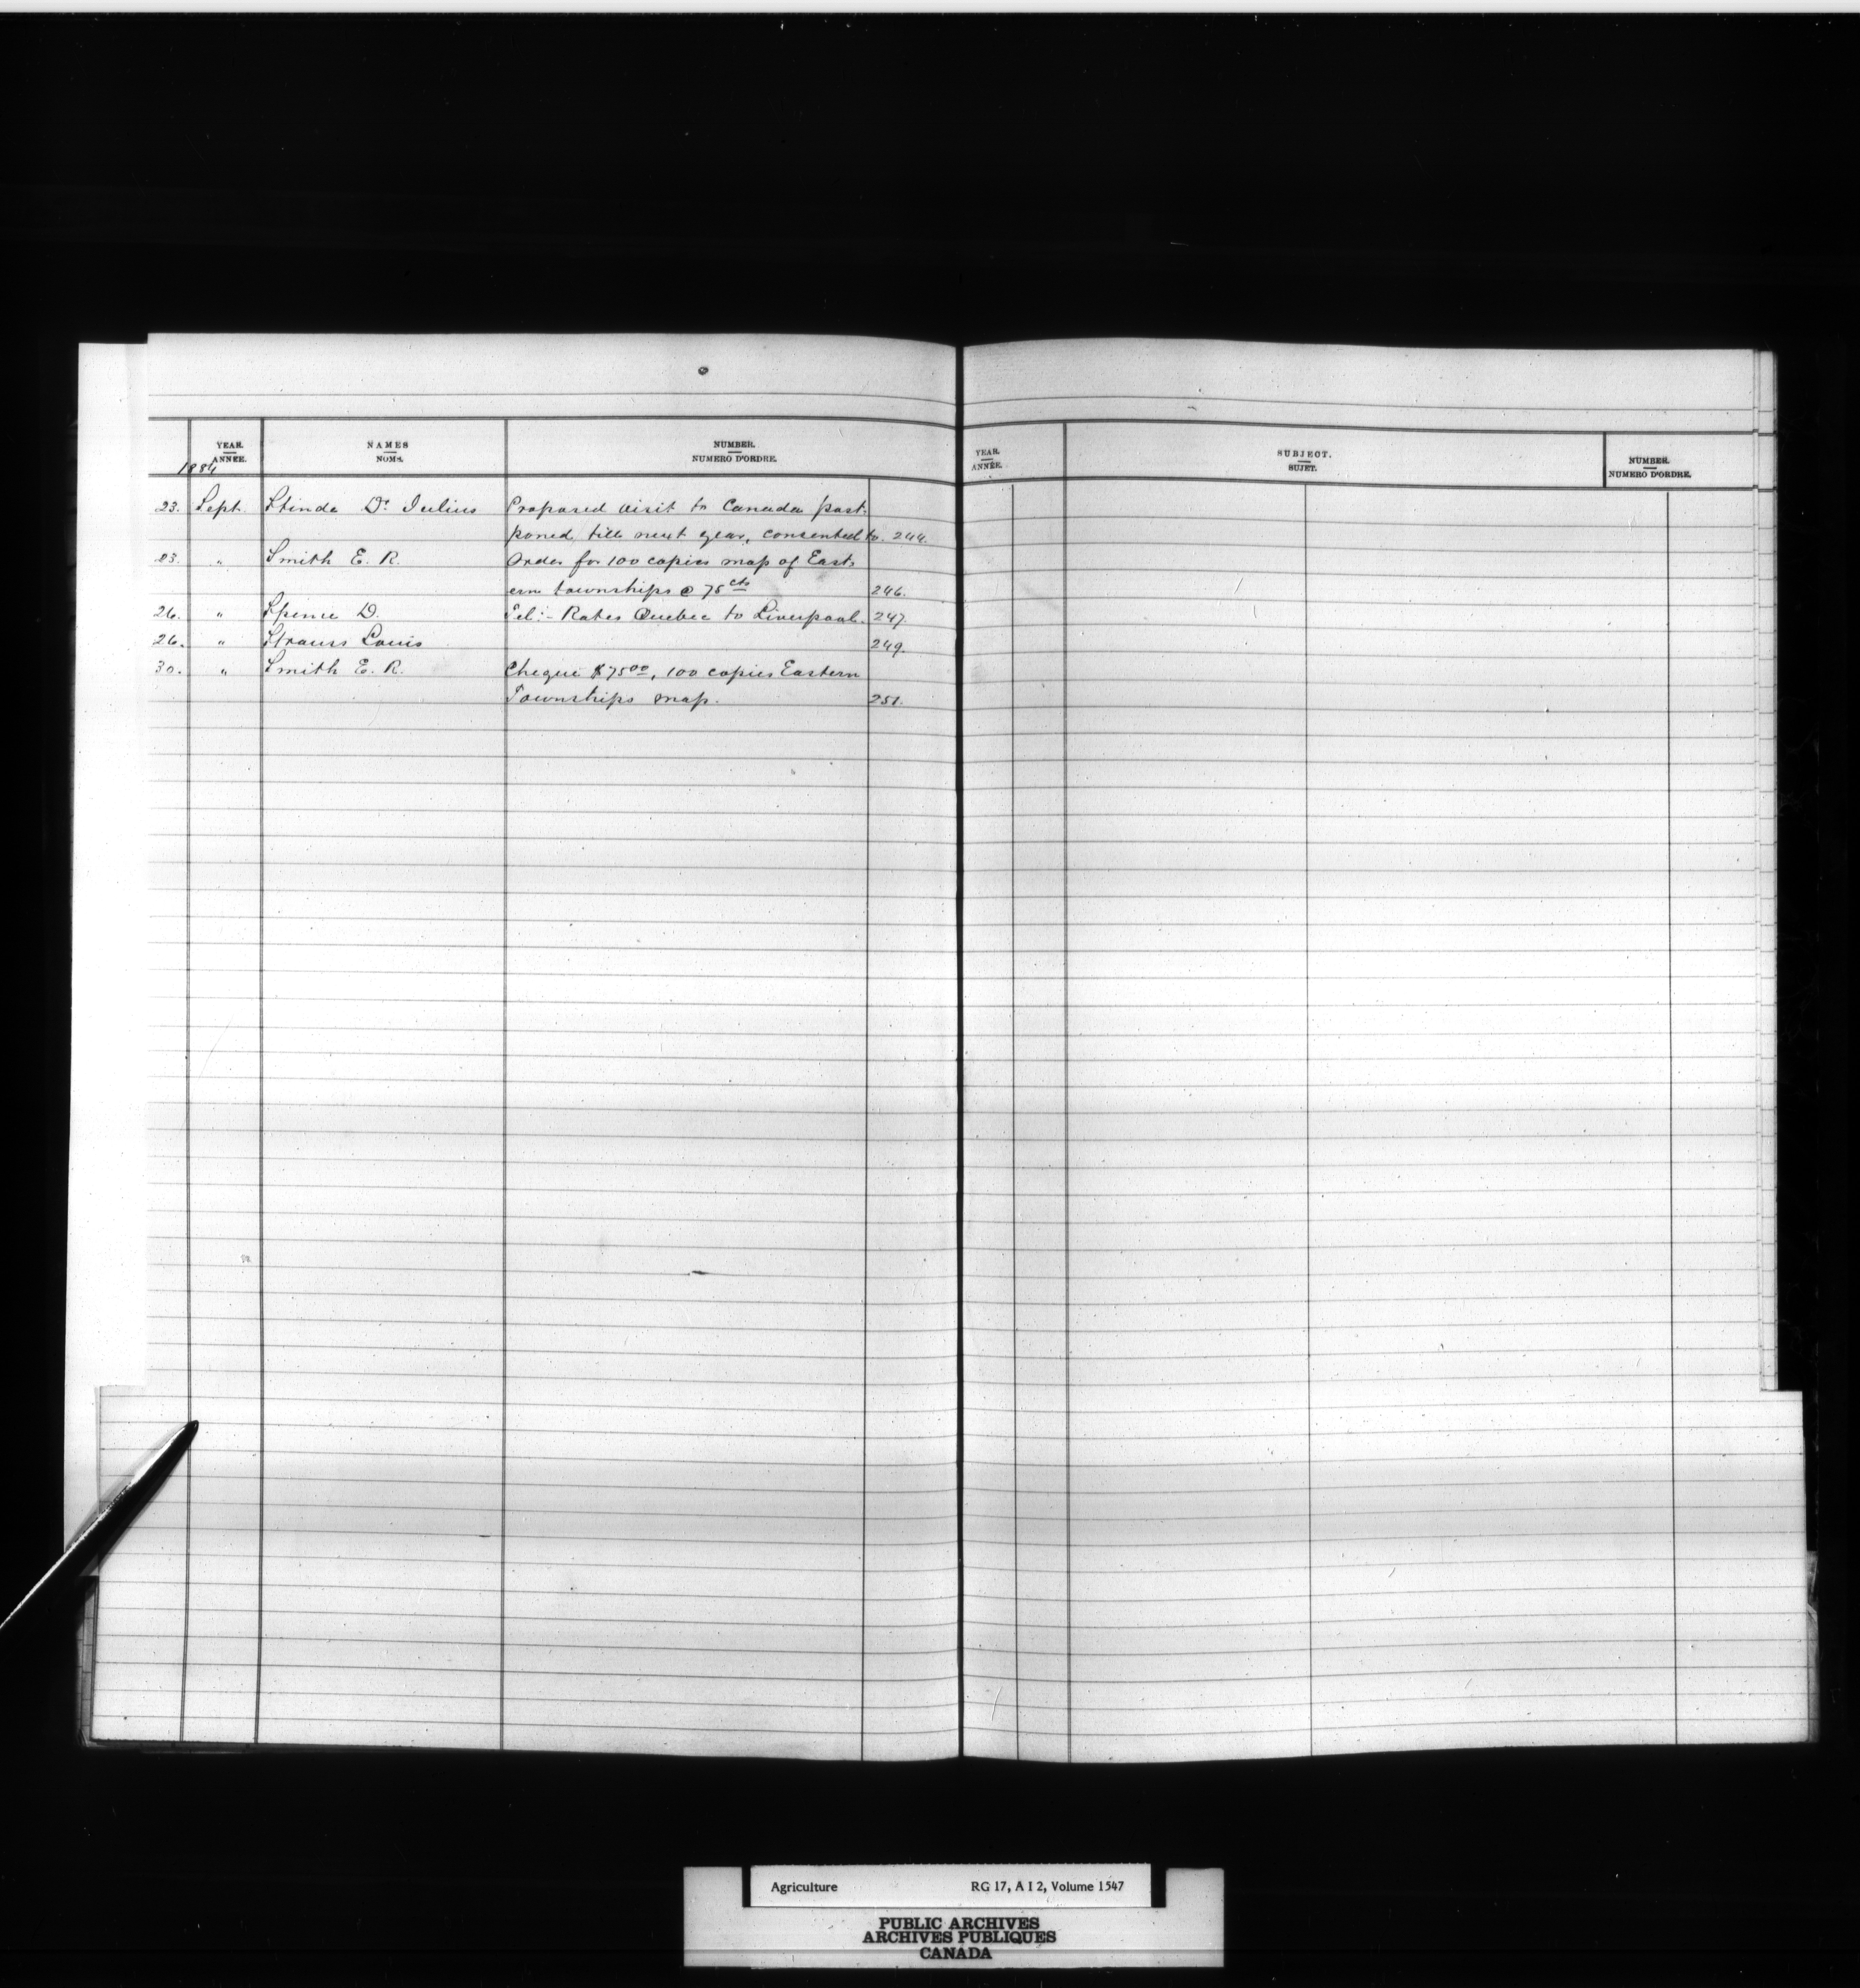 YEAR. ANNÉE. NAMES NOMS. NUMBER. NUMERO D'ORDRE. YEAR. ANNÉE. SUBJECT. SUJET. NUMBER. NUMERO D'ORDRE.
1884
23. Sept. Stinde Dr Julius Proposed visit to Canada post-
poned till next year, consented to. 244.
23. " Smith E. R. Order for 100 copies map of East-
ern townships @ 75 cts 246.
26. " Spence D. Tel:- Rates Quebec to Liverpool. 247.
26. " Strauss Louis 249.
30. " Smith E. R. Cheque $75.00, 100 copies Eastern
Townships map. 251.
Agriculture RG 17, A I 2, Volume 1547
PUBLIC ARCHIVES
ARCHIVES PUBLIQUES
CANADA